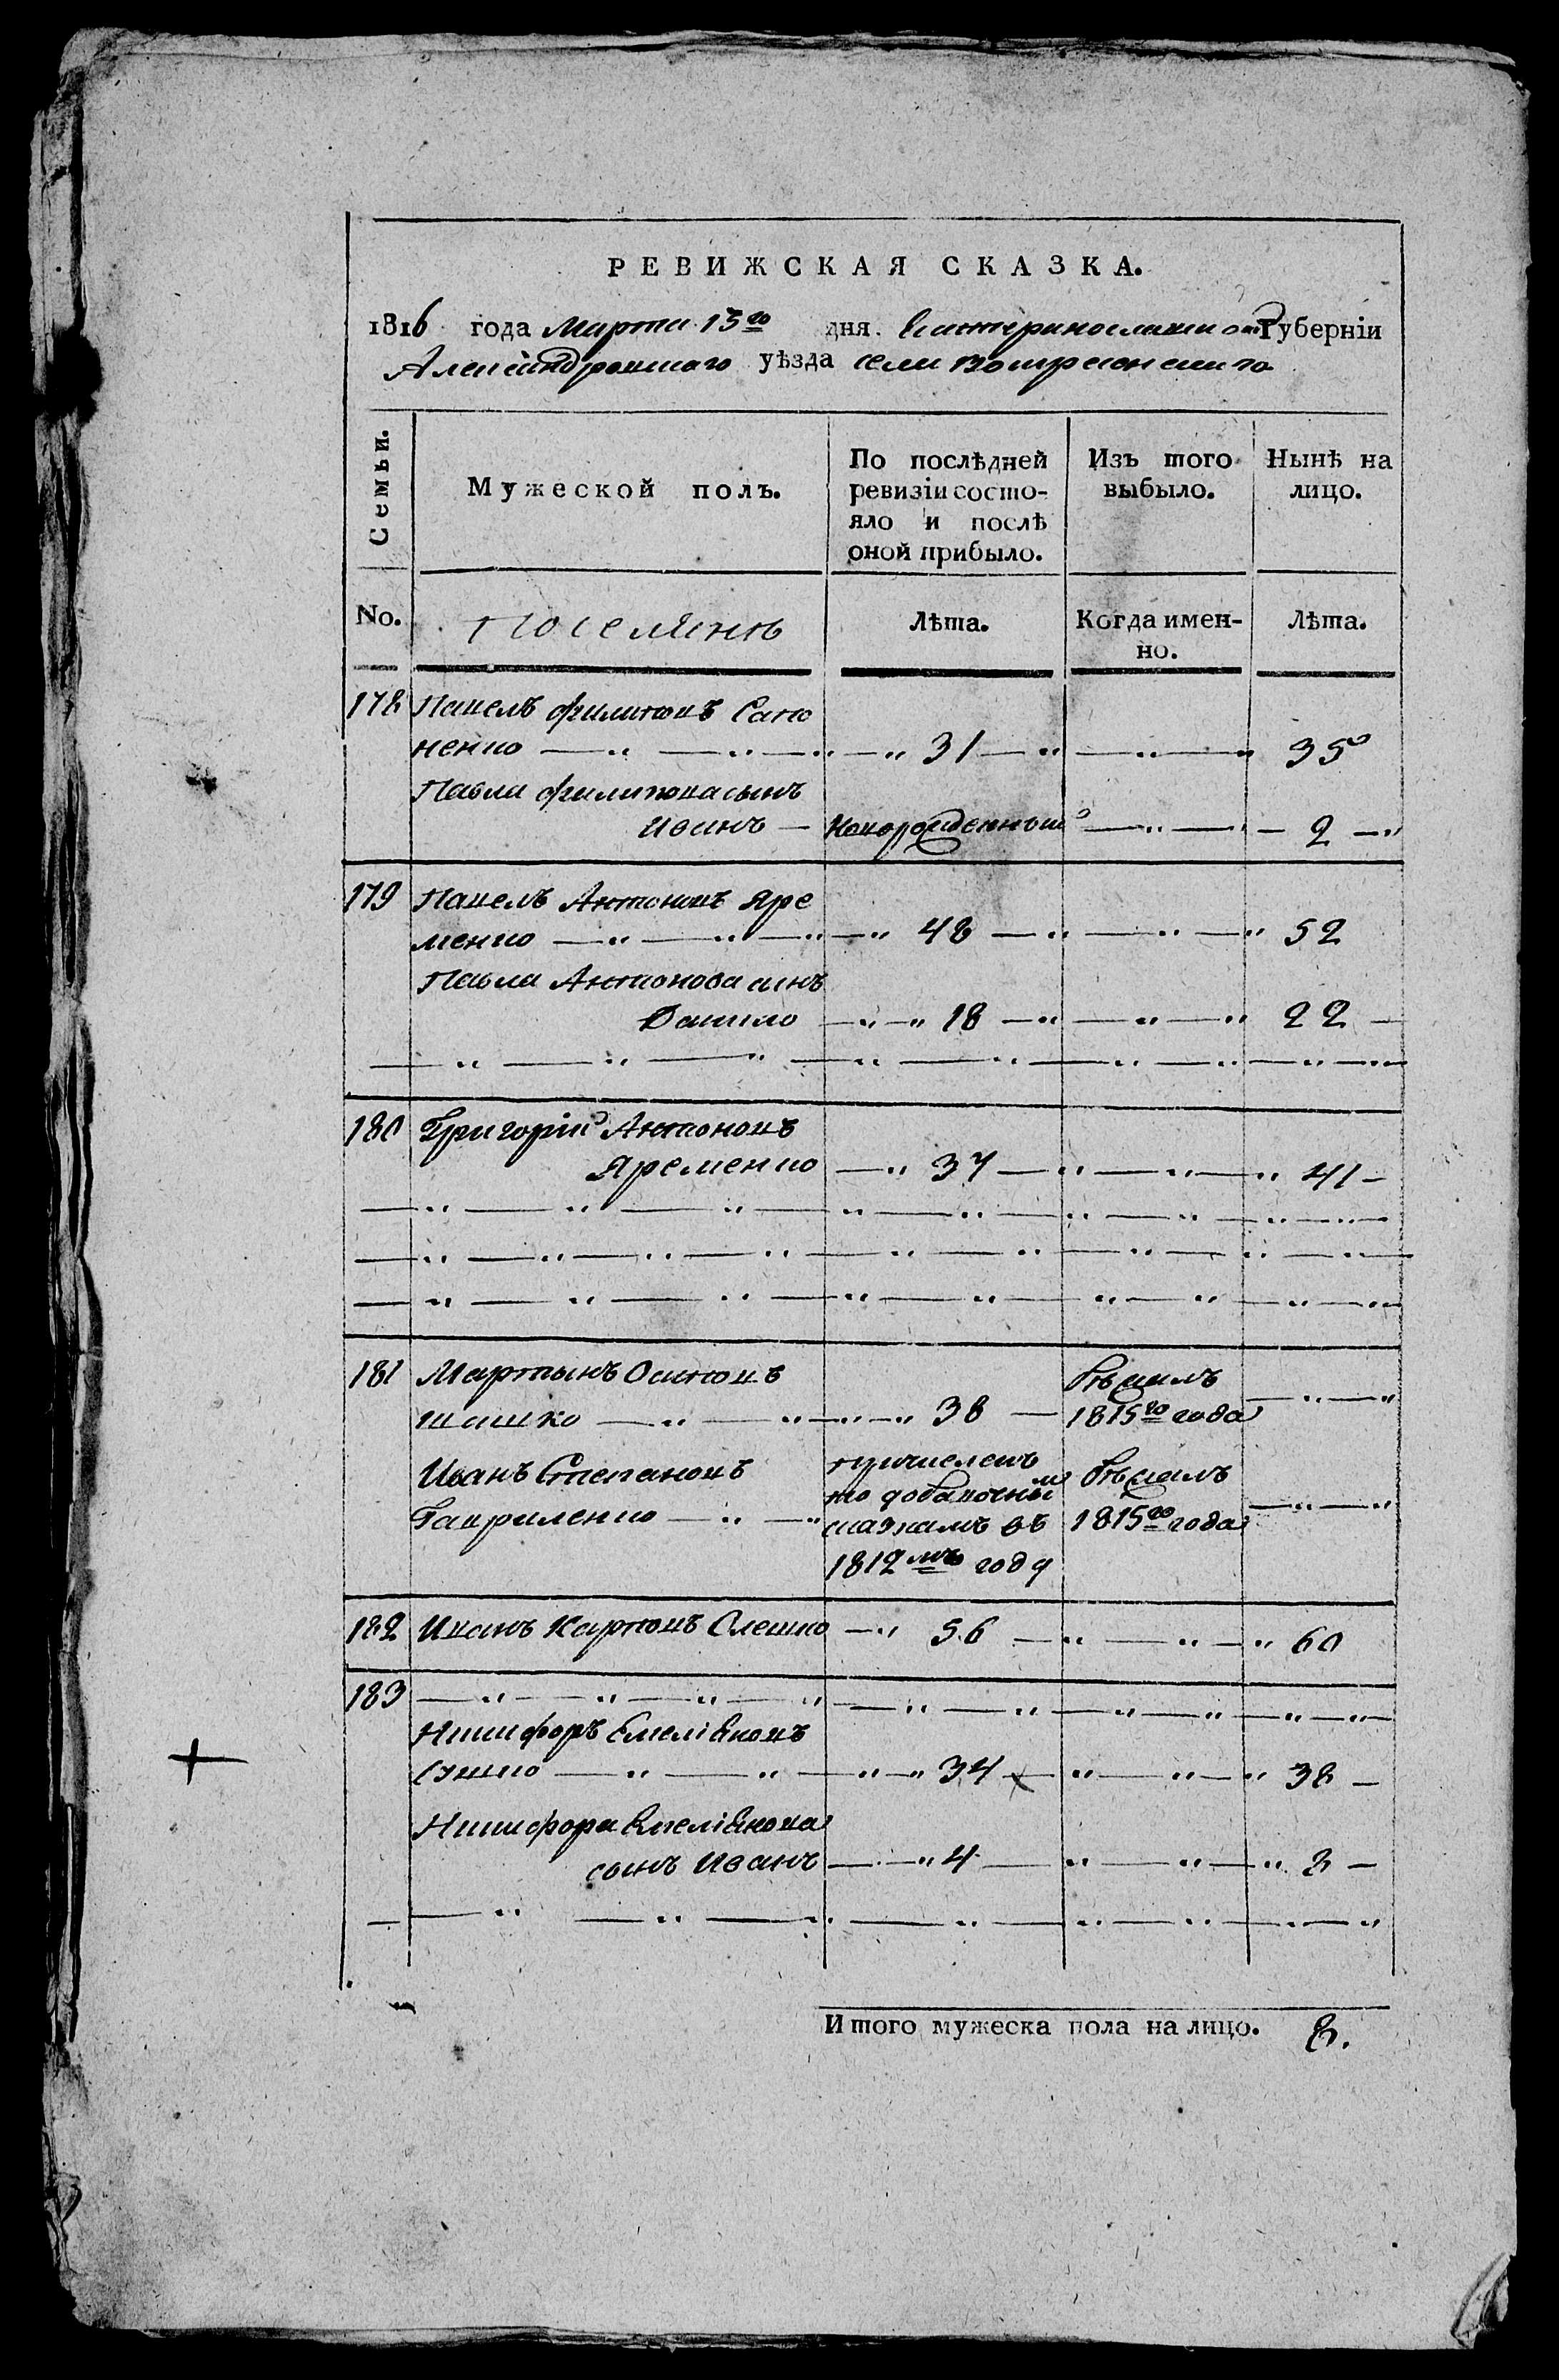 РЕВИЖСКАЯ СКАЗКА.
1816 года Марта 15го дня Екатеринославской Губерніи
Александровскаго уѣзда села Воскресенскаго
Семьи.
Мужеской полъ.
По послѣдней ревизіи состо-
яло и послѣ
оной прибыло.
Изъ того
выбыло.
Нынѣ на
лицо.
No.
Поселянъ
Лѣта.
Когда имен-
но.
Лѣта.
178 Павелъ филиповъ Сапо
ненко 31 35
Павла филипова сынъ
Иванъ Новорожденный 2
179 Павелъ Антоновъ Яре
менко 48 52
Павла Антонова синъ
Данило 18 22
180 Григорій Антоновъ
Яременко 37 41
181 Мартынъ Осиповъ
шашко 38
Бѣжалъ
1815го года
Иванъ Степановъ
Гавриленко
причисленъ
по добавочным
сказкамъ въ
1812мъ году
Бѣжалъ
1815го года
182 Иванъ Карповъ Олешко 56 60
183
Никифоръ Емеліяновъ
34 38
Никифора Емеліянова
сынъ Иванъ 4 8
Итого мужеска пола на лицо. 8.